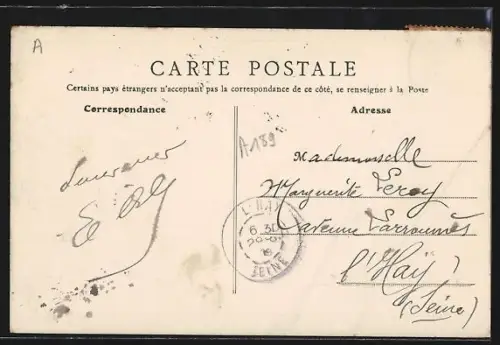 A
CARTE POSTALE
Certains pays étrangers n'acceptant pas la correspondance de ce côté, se renseigner à la Poste
Correspondance
Adresse
A189
Mademoiselle
Marguerite Leroy
avenue Larroumès
l'Hay
(Seine)
6 30
SEINE